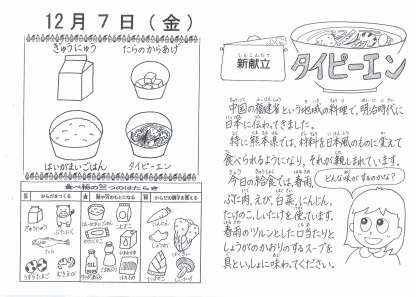 12月7日(金)
ぎゅうにゅう
たらのからあげ
はいがまいごはん
タイピーエン
食べ物の三つのはたらき
からだをつくる
熱や力のもとになる
からだの調子を整える
ぎゅうにゅう
ぶたにく
たら
うずらたまご
むきえび
はいがまいごはん
こむぎこ
はるさめ
しんこんだて
新献立
タイピーエン
中国の福建省という地域の料理で、明治時代に
日本に伝わってきました。
特に熊本県では、材料を日本風のものに変えて
食べられるようになり、それが親しまれています。
今日の給食では、春雨、
ぶた肉、えび、白菜、にんじん、
たけのこ、しいたけを使っています。
春雨のツルンとした口当たりと
しょうがのかおりのするスープを
具といっしょに味わってください。
どんな味がするのかな?